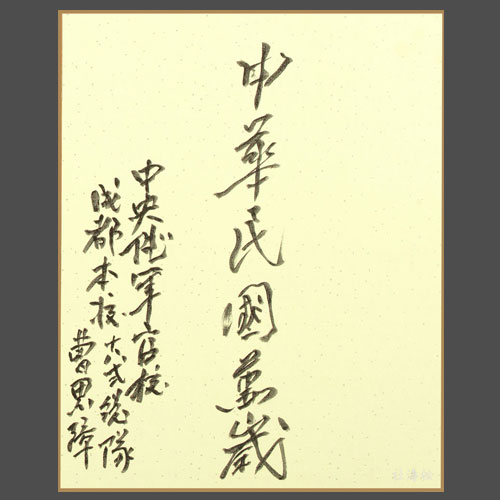 中華民國萬歲
中央陸軍官校
成都本校十六式總隊
曹思璋